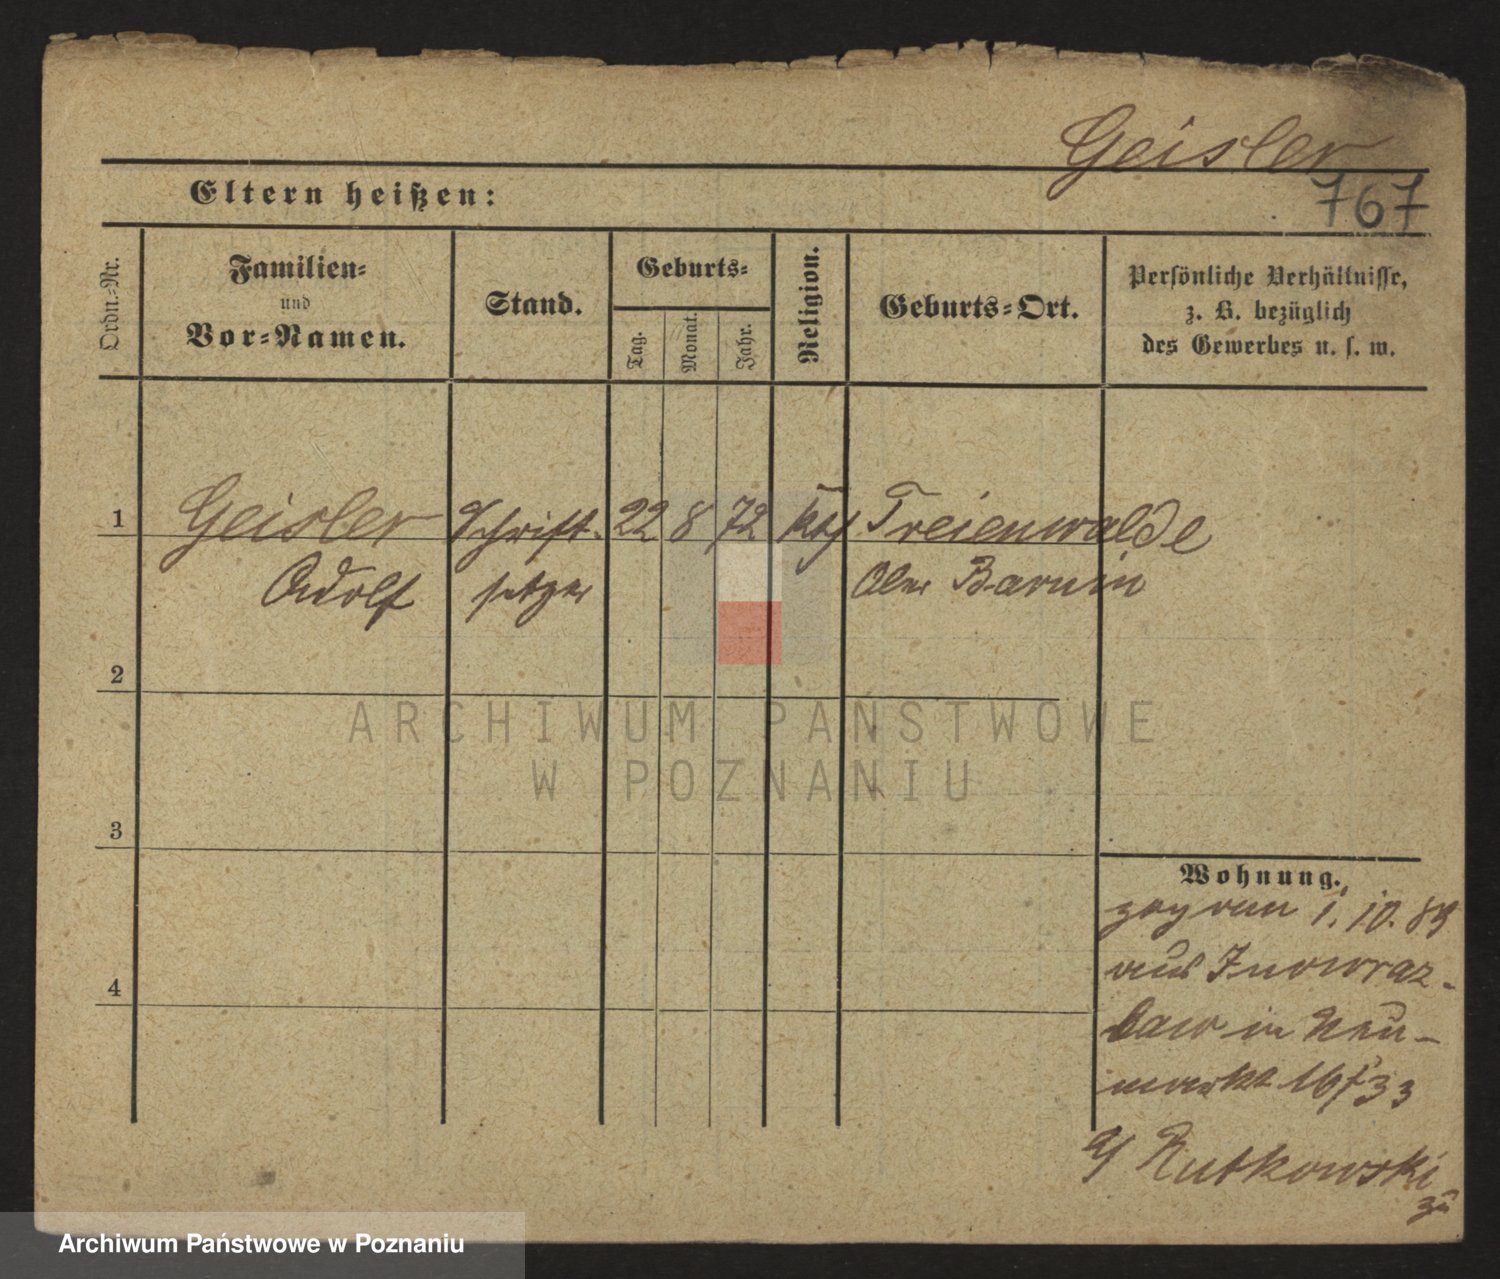 Geisler
Eltern heißen:
767
Ordn.-Nr.
Familien-
und
Vor-Namen.
Stand.
Geburts-
Tag.
Monat.
Jahr.
Religion.
Geburts-Ort.
Persönliche Verhältnisse,
z. B. bezüglich
des Gewerbes u. s. w.
1
Geisler Schrift- 22 8 72 kth Freienwalde
Adolf setzer Ober Barnim
2
ARCHIWUM PAŃSTWOWE
W POZNANIU
3
Wohnung.
1. 10. 89
aus Inowraz-
law in Neu-
markt 16/33
b/ Rutkowski
zu
4
Archiwum Państwowe w Poznaniu